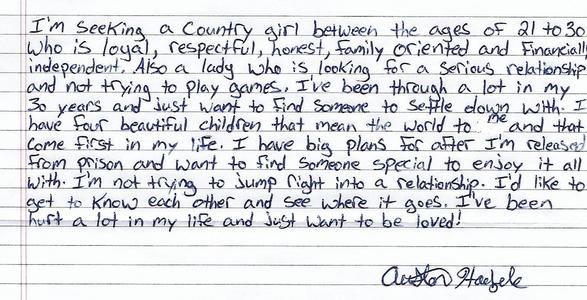 I'm seeking a Country girl between the ages of 21 to 30
who is loyal, respectful, honest, family oriented and Financially
independent. Also a lady who is looking for a serious relationship
and not trying to play games. I've been through a lot in my
30 years and just want to find someone to settle down with. I
have four beautiful children that mean the world to me and that
come first in my life. I have big plans for after I'm released
from prison and want to find someone special to enjoy it all
with. I'm not trying to jump right into a relationship. I'd like to
get to know each other and see where it goes. I've been
hurt a lot in my life and just want to be loved!